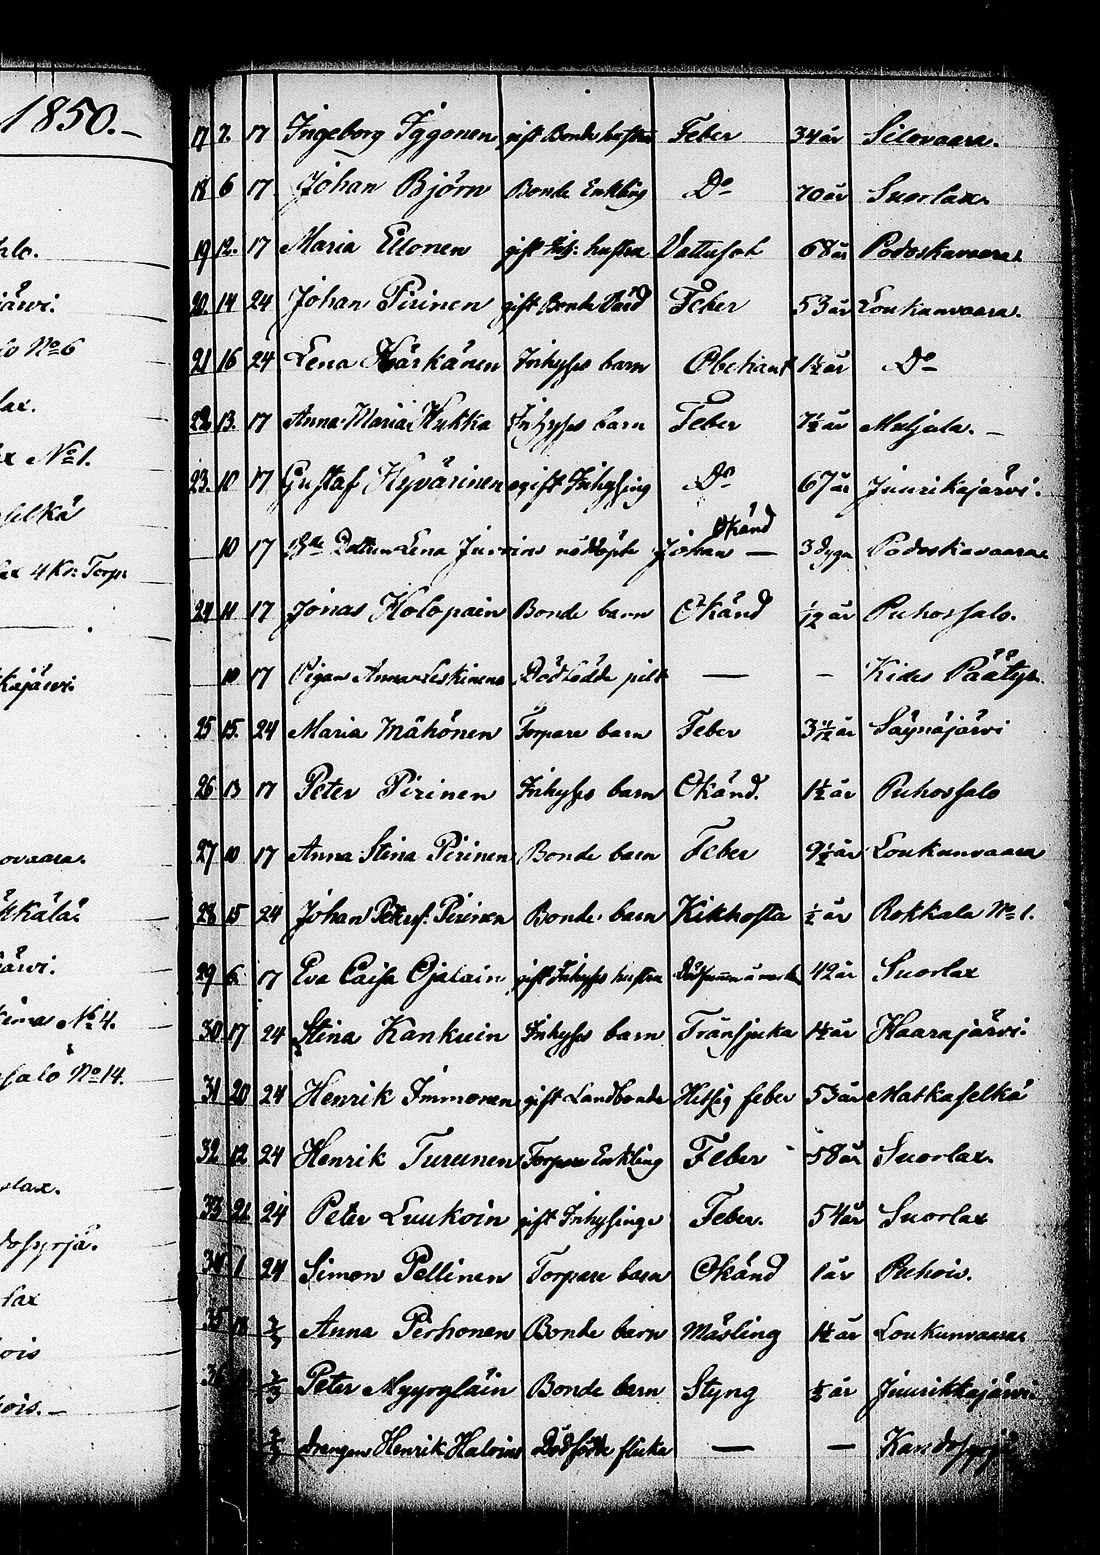 1850.
alo.
järvi.
lo No 6
lax.
x No 1.
selkä
ax 4 Kr: Torp:
kajärvi
ovaara.
kkälä.
järvi.
No 4.
salo No 14.
lax.
dosyrjä.
lax
ois
ois. —
17 7. 17 Ingeborg Iggonen gift Bonde hustru Feber 34 år Silovaara.
18 6 17 Johan Björn Bonde Enkling Do 70 år Suorlax.
19 12. 17 Maria Ellonen gift Inh: hustru Vattusot 68 år Podoskavaara
20. 14 24 Johan Pirinen gift Bonde Feber 53 år Loukunvaara.
21 16 24 Lena Härkänen Inhyses barn Obekant 1½ år Do
22. 13. 17 Anna Maria Kukka Inhyses barn Feber 7½ år Muljula. —
23. 10 17 Gustaf Hyvärinen ogift Inhysing Do 67 år Juurikajärvi.
— 10 17 Lena nöddöpte Johan Okänd — 3 dygn Podoskavaara
24 11 17 Jonas Holopain Bonde barn Okänd ½ år Puhossalo.
10. 17 Pigan Anna Leskinens Dödfödde pilt — — Kides Päätye.
25 15. 24 Maria Mähönen Torpare barn Feber 3 år Säynäjärvi
26 13 17 Peter Pirinen Inhyses barn Okänd. 1½ år Puhossalo
27 10 17 Anna Stina Pirinen Bonde barn Feber 9½ år Loukunvaara
28 15 24 Johan Petersf: Pirinen Bonde barn Kikhosta ½ år Rokkala No 1.
29 6. 17 Eva Caisa Ojalain gift Inhyses hustru 42 år Suorlax
30 17 24 Stina Kankuin Inhyses barn Trånsjuka 1½ år Haarajärvi.
31 20 24 Henrik Immonen gift Landbonde Hetsig feber 53 år Matkaselkä
32 12 24 Henrik Turunen Torpare Enkling Feber 58 år Suorlax.
33 21. 24 Peter Luukoin gift Inhysing Feber. 54 år Suorlax
34 1 24 Simon Pellinen Torpare barn Okänd 1 år Puhois.
35 18 Anna Pirhonen Bonde barn Mäsling 1½ år Loukunvaara
36 Peter Myyryläin Bonde barn Styng ½ år Juurikkajärvi
drengens Henrik Dödfödde flicka — —